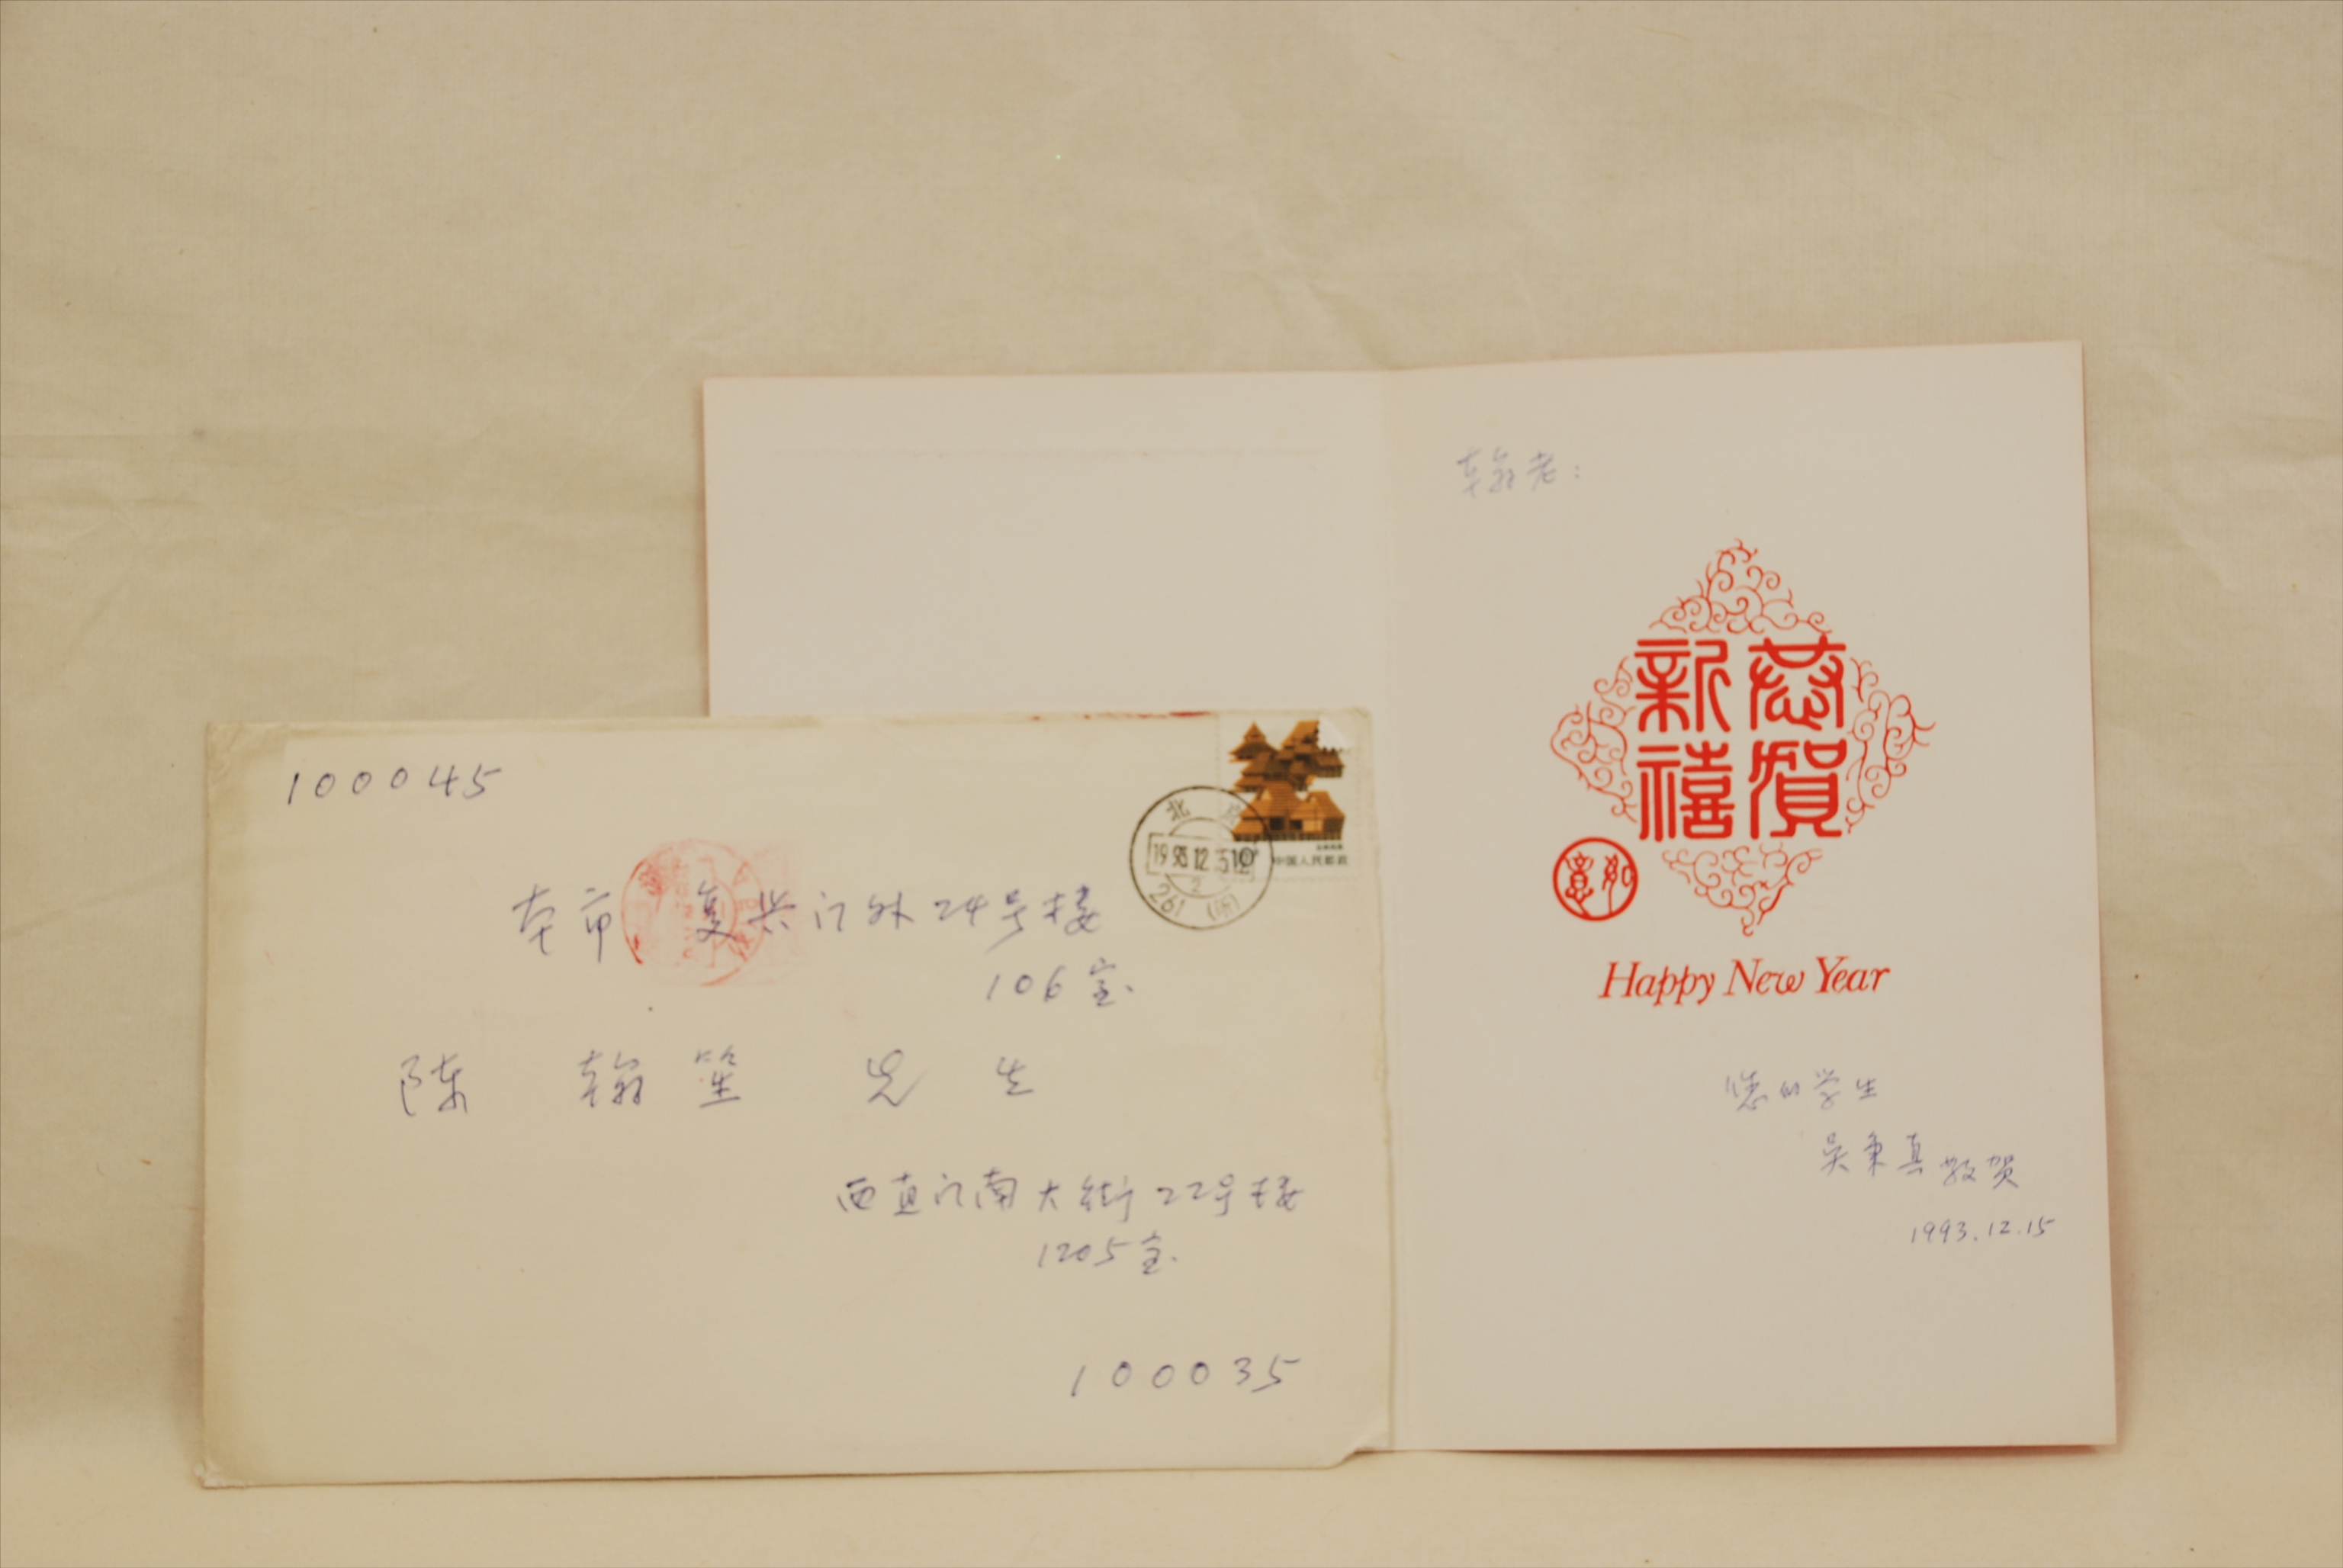 100045
本市 复兴门外24号楼
106室.
陈 翰笙 先生
西直门南大街22号楼
1205室.
100035
北京
2
261 (所)
中国人民邮政
翰老:
恭贺
新禧
如意
Happy New Year
您的学生
吴秉真 敬贺
1993.12.15